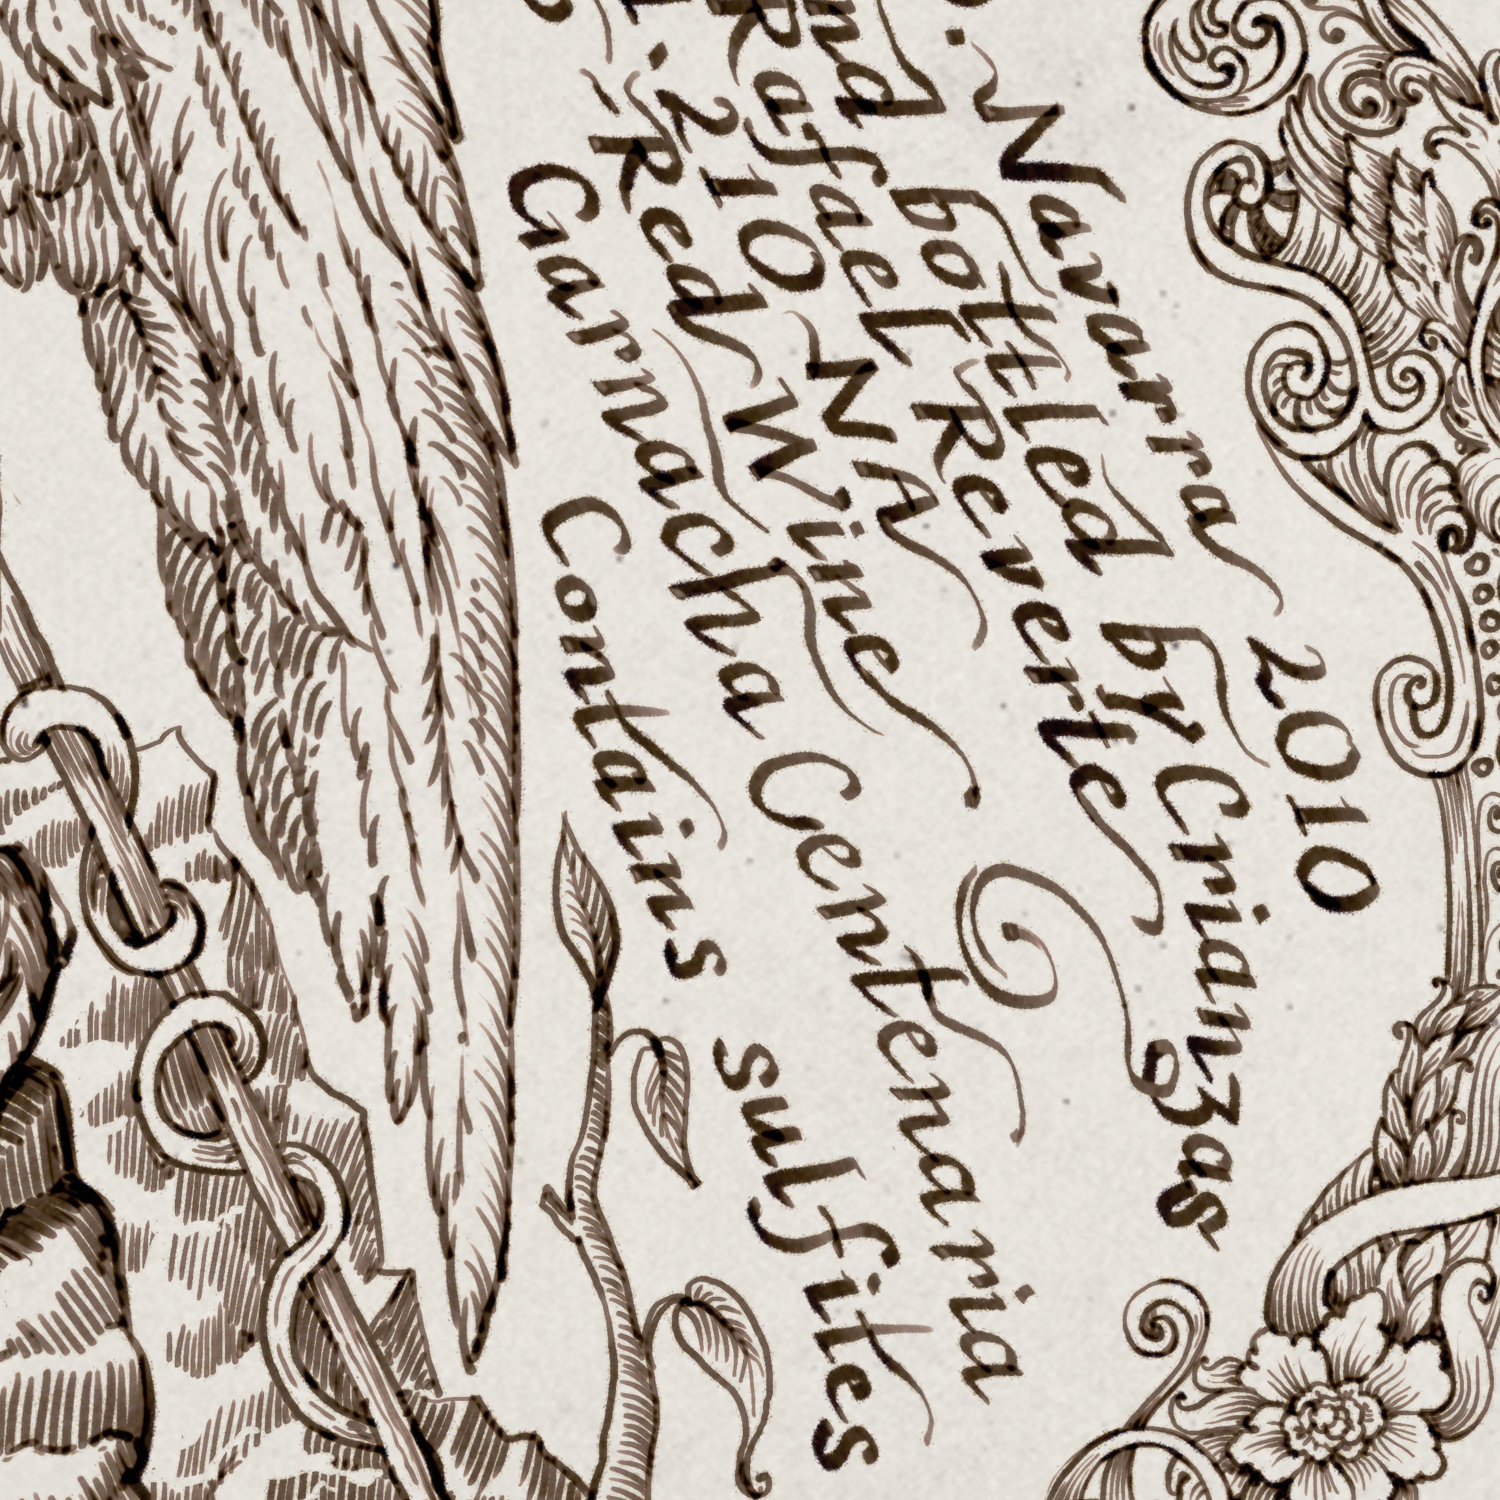 Navarra 2010
bottled by Crianzas
Rafael Reverte
210 NA
Red Wine
Garnacha Centenaria
Contains sulfites